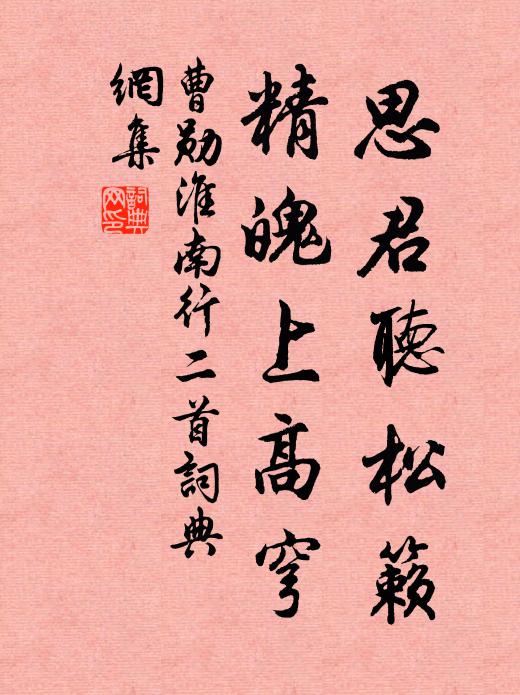 思君聽松籟
精魄上高穹
曹勛淮南行二首詞典
網集
詞典網印